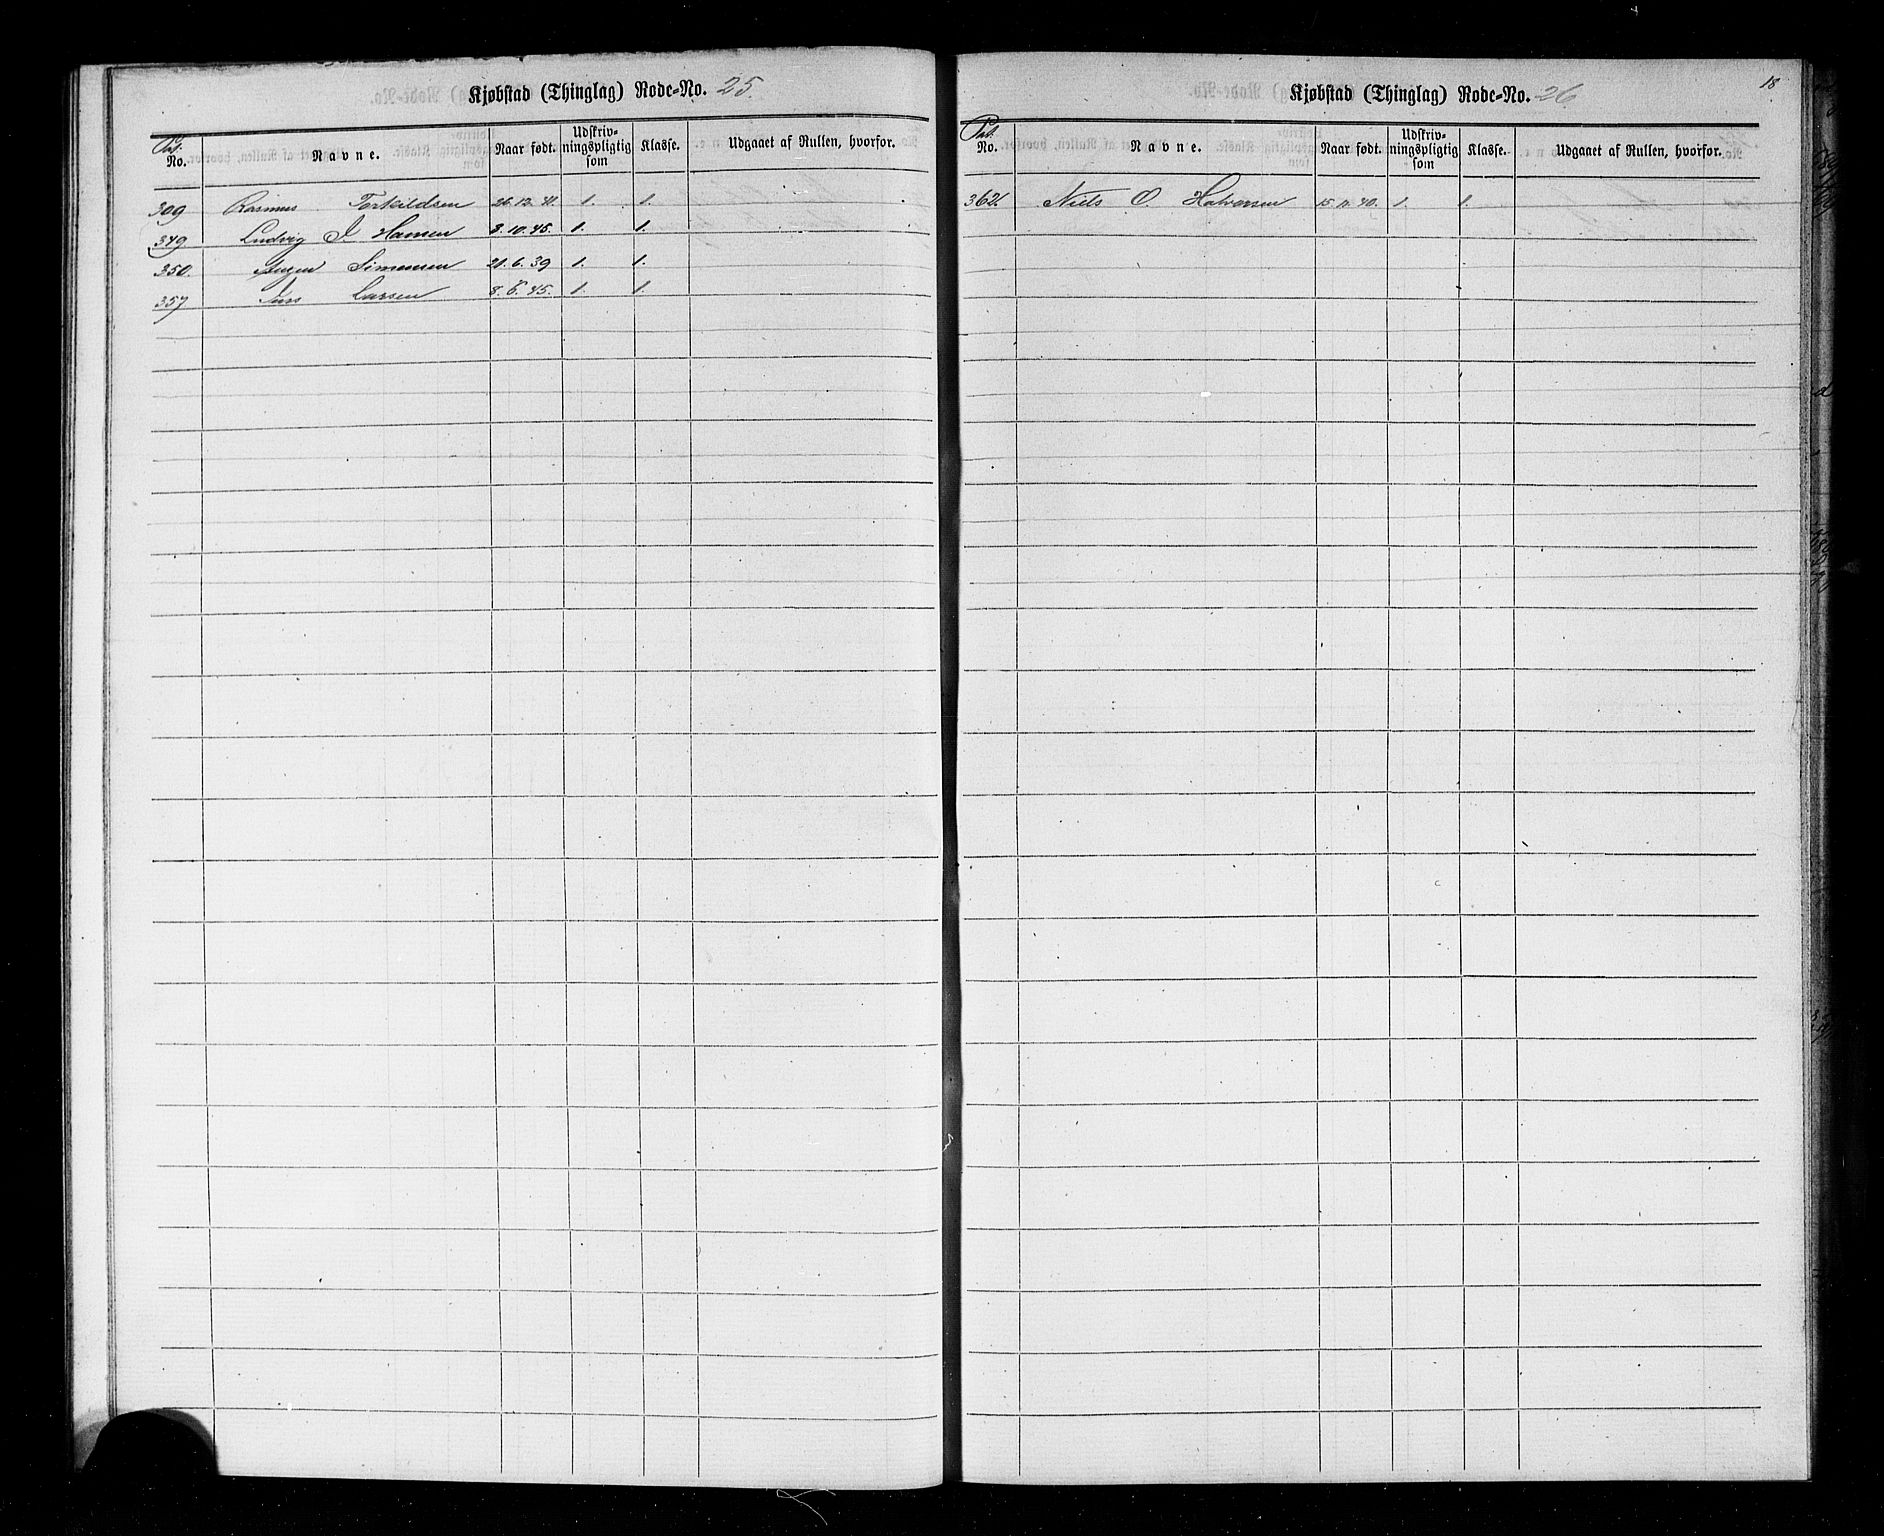 Kjøbstad (Thinglag) Rode-No. 25.
Pat. No. Navne. Naar født. Udskriv-ningspligtig som Klasse. Udgaaet af Rullen, hvorfor.
309 Rasmus Torkildsen 26.12.41. 1. 1.
349. Ludvig J Hansen 3.10.45. 1. 1.
350. Simensen 21.6.39 1. 1.
357 Larsen 8.6.45. 1. 1.
18
Kjøbstad (Thinglag) Rode-No. 26
Pat. No. Navne. Naar født. Udskriv-ningspligtig som Klasse. Udgaaet af Rullen, hvorfor.
362. Niels O. Halvorsen 15.11.40. 1. 1.